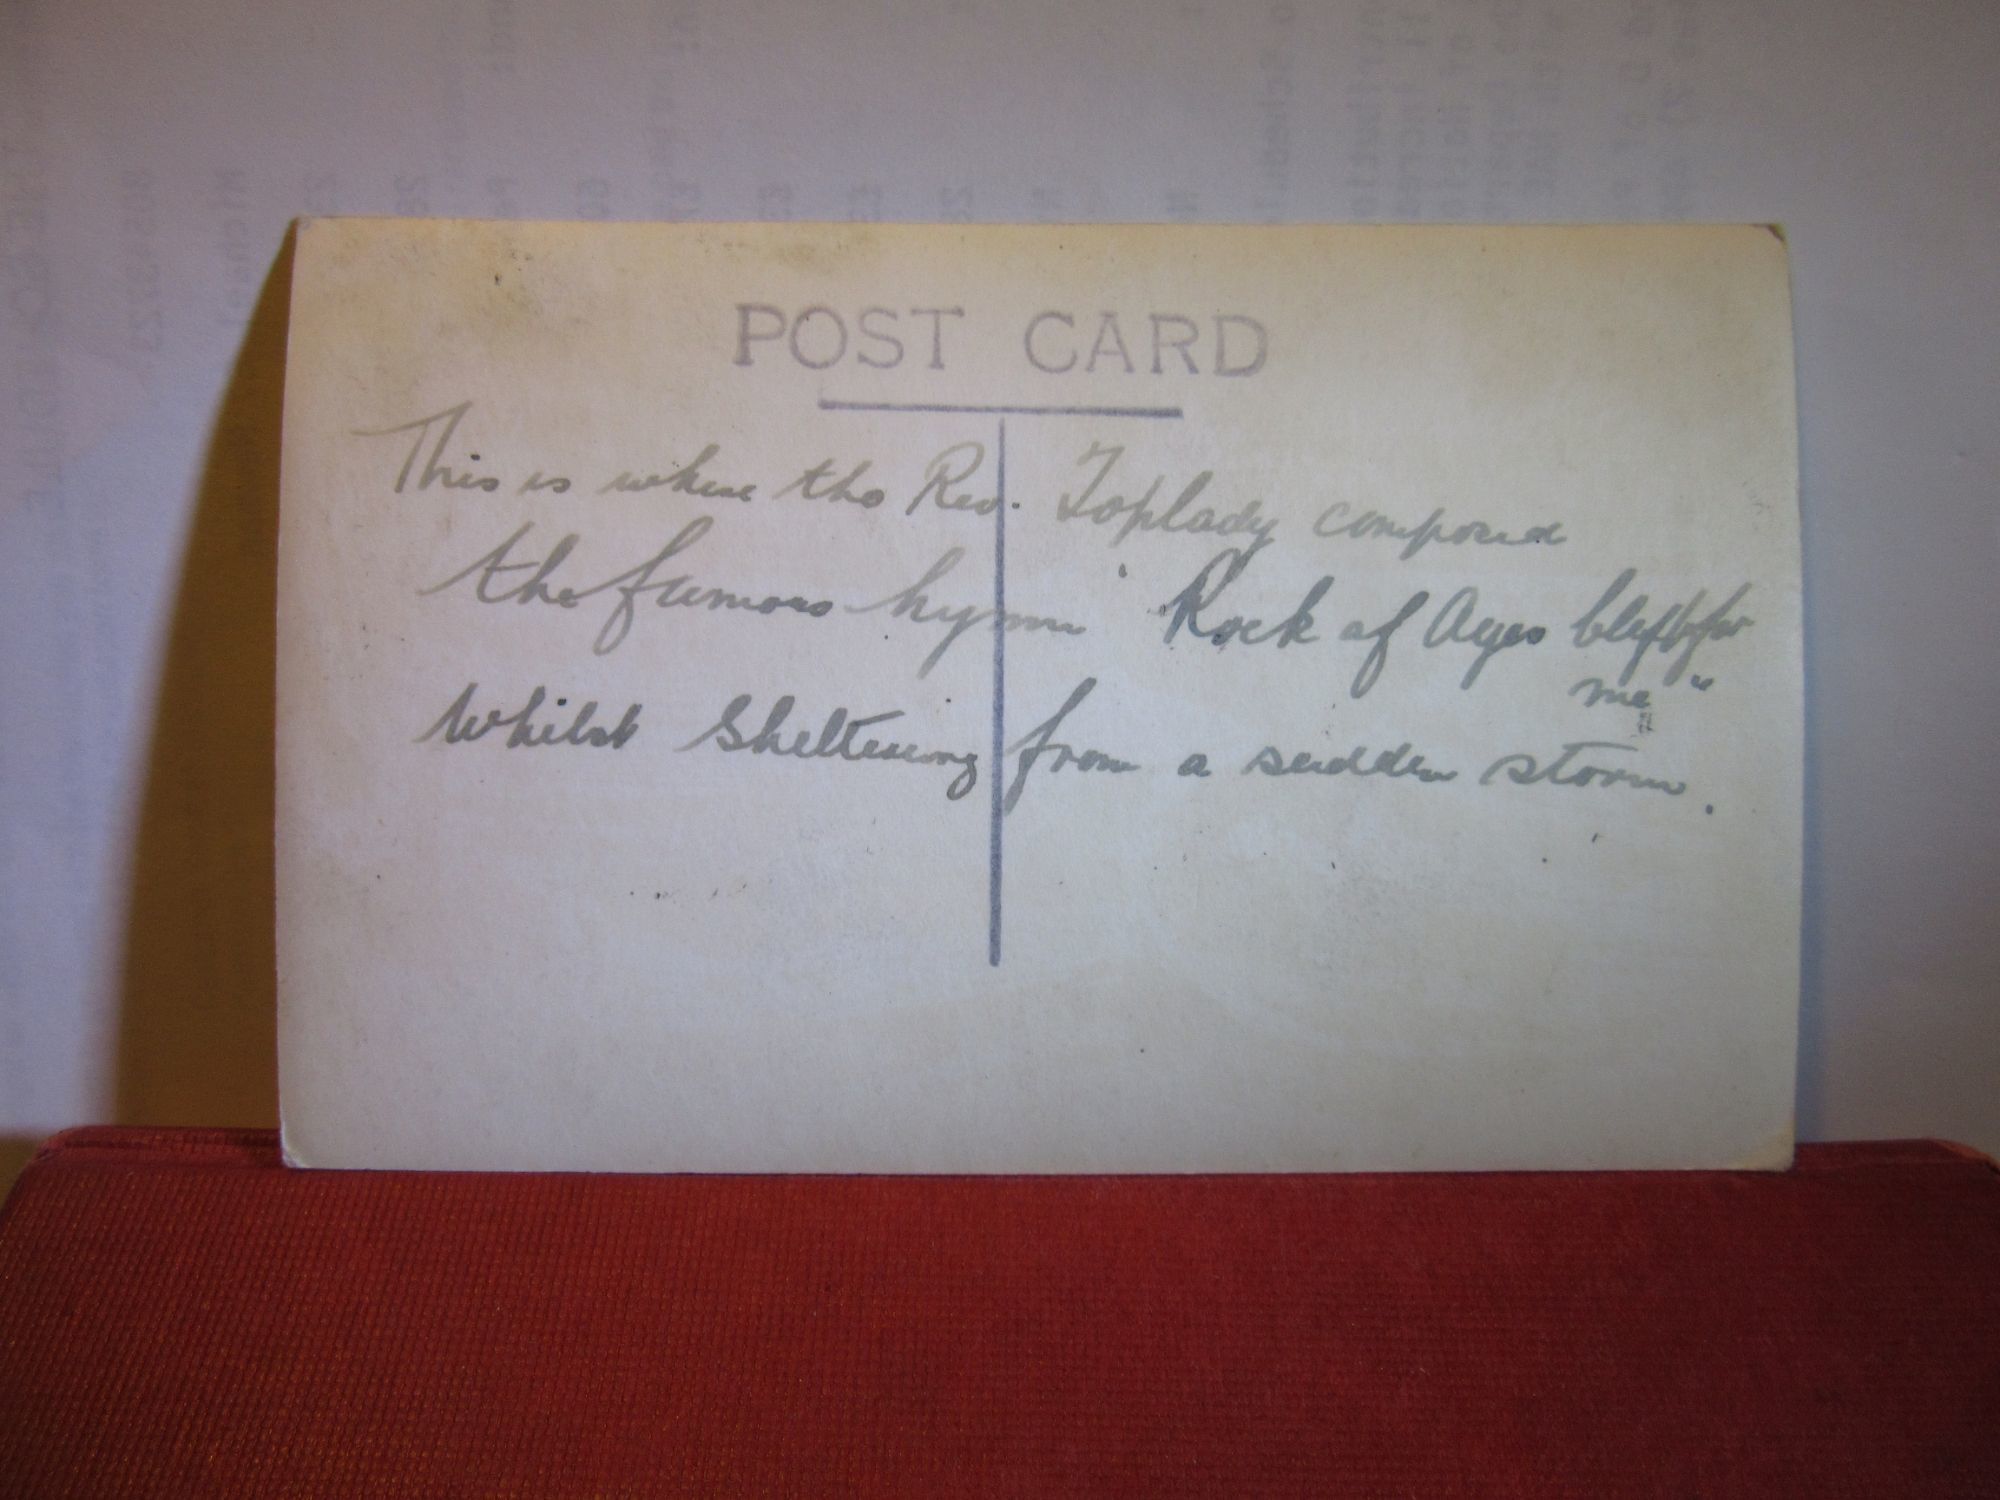 POST CARD
This is where the Rev. Toplady composed
the famous hymn "Rock of Ages cleft for
me"
Whilst Sheltering from a sudden storm.